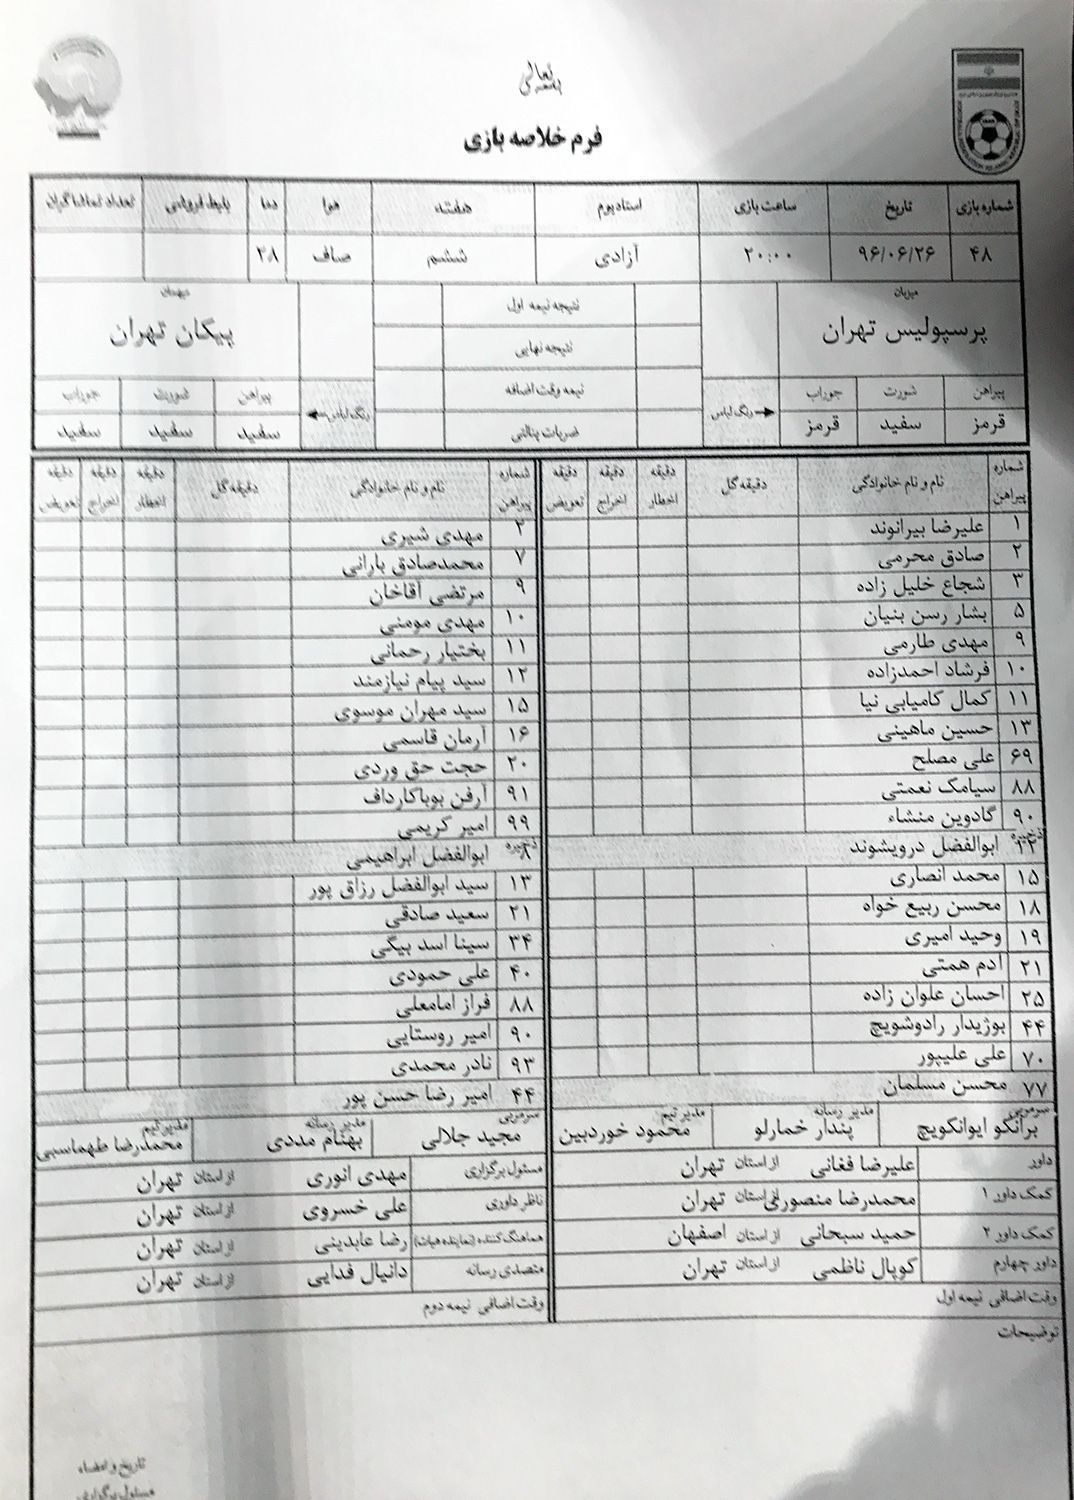 بسمه تعالی
فرم خلاصه بازی
شماره بازی تاریخ ساعت بازی استادیوم هفته هوا دما بلیط فروشی تعداد تماشاگران
۴۸ ۹۶/۰۶/۲۶ ۲۰:۰۰ آزادی ششم صاف ۲۸
میزبان نتیجه نیمه اول میهمان
پرسپولیس تهران نتیجه نهایی پیکان تهران
پیراهن شورت جوراب رنگ لباس نیمه وقت اضافه رنگ لباس پیراهن شورت جوراب
قرمز سفید قرمز ضربات پنالتی سفید سفید سفید
شماره پیراهن نام و نام خانوادگی دقیقه گل دقیقه اخطار دقیقه اخراج دقیقه تعویض شماره پیراهن نام و نام خانوادگی دقیقه گل دقیقه اخطار دقیقه اخراج دقیقه تعویض
۱ علیرضا بیرانوند ۲ مهدی شیری
۲ صادق محرمی ۷ محمدصادق بارانی
۳ شجاع خلیل زاده ۹ مرتضی آقاخان
۵ بشار رسن بنیان ۱۰ مهدی مومنی
۹ مهدی طارمی ۱۱ بختیار رحمانی
۱۰ فرشاد احمدزاده ۱۲ سید پیام نیازمند
۱۱ کمال کامیابی نیا ۱۵ سید مهران موسوی
۱۳ حسین ماهینی ۱۶ آرمان قاسمی
۶۹ علی مصلح ۲۰ حجت حق وردی
۸۸ سیامک نعمتی ۹۱ آرفن بوباکارداف
۹۰ گادوین منشاء ۹۹ امیر کریمی
ذخیره ابوالفضل درویشوند ذخیره ۸ ابوالفضل ابراهیمی
۱۵ محمد انصاری ۱۳ سید ابوالفضل رزاق پور
۱۸ محسن ربیع خواه ۲۱ سعید صادقی
۱۹ وحید امیری ۳۴ سینا اسد بیگی
۲۱ آدم همتی ۴۰ علی حمودی
۲۵ احسان علوان زاده ۸۸ فراز امامعلی
۴۴ بوژیدار رادوشویچ ۹۰ امیر روستایی
۷۰ علی علیپور ۹۳ نادر محمدی
۷۷ محسن مسلمان ۴۴ امیر رضا حسن پور
سرمربی مدیر رسانه مدیر تیم سرمربی مدیر رسانه مدیر تیم
برانکو ایوانکویچ پندار خمارلو محمود خوردبین مجید جلالی بهنام مددی محمدرضا طهماسبی
داور علیرضا فغانی از استان تهران مسئول برگزاری مهدی انوری از استان تهران
کمک داور ۱ محمدرضا منصوری از استان تهران ناظر داوری علی خسروی از استان تهران
کمک داور ۲ حمید سبحانی از استان اصفهان هماهنگ کننده (نماینده هیات) رضا عابدینی از استان تهران
داور چهارم کوپال ناظمی از استان تهران متصدی رسانه دانیال فدایی از استان تهران
وقت اضافی نیمه اول وقت اضافی نیمه دوم
توضیحات
تاریخ و امضاء
مسئول برگزاری